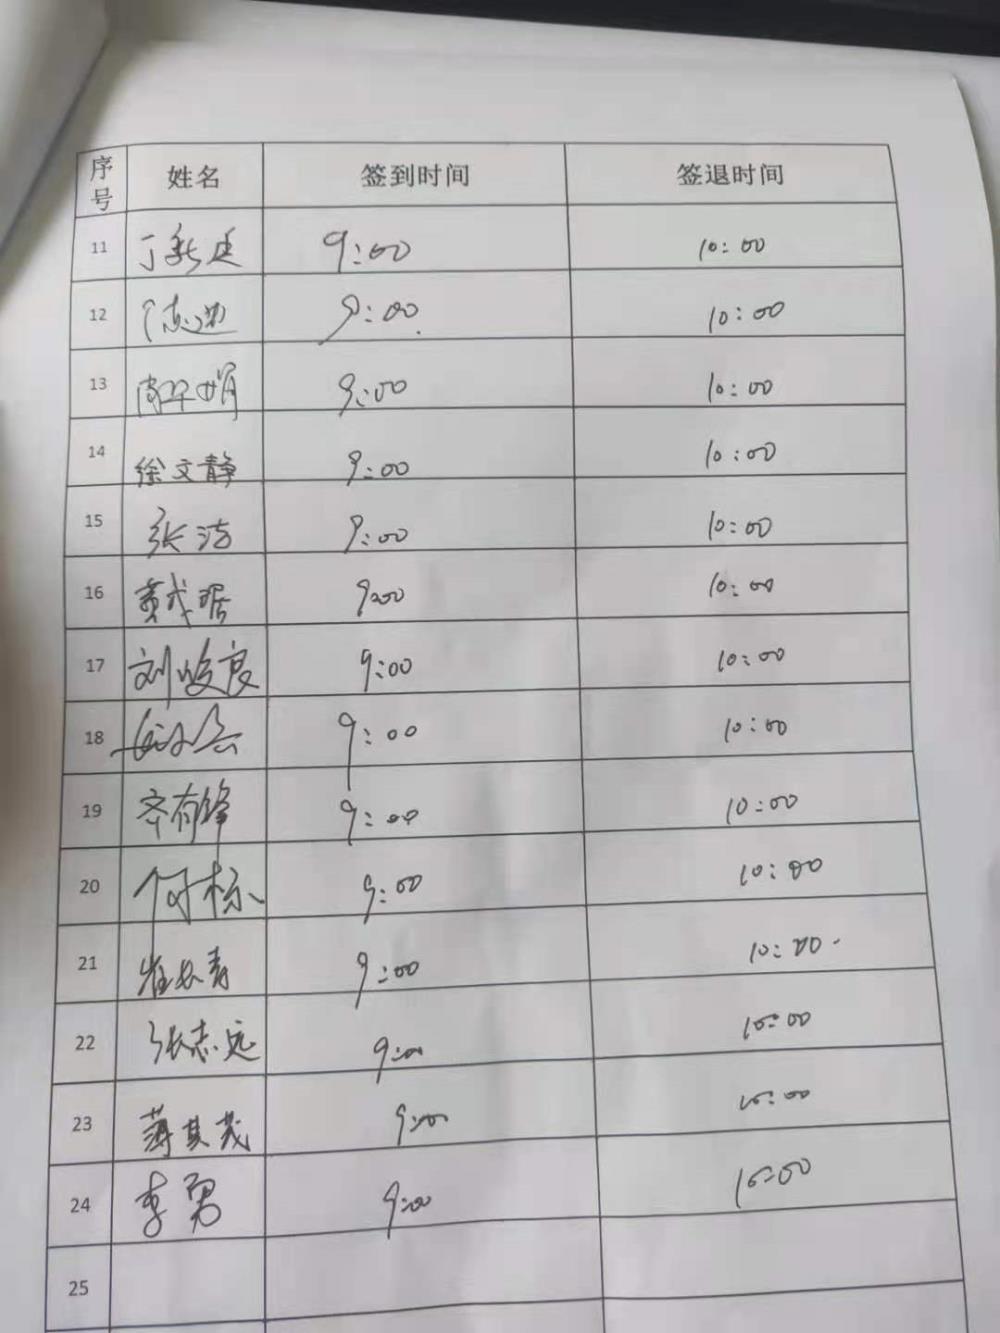 序号 姓名 签到时间 签退时间
11 丁新廷 9:00 10:00
12 9:00 10:00
13 9:00 10:00
14 徐文静 9:00 10:00
15 张洁 9:00 10:00
16 黄成琚 9:00 10:00
17 刘俊良 9:00 10:00
18 9:00 10:00
19 齐有锋 9:00 10:00
20 何栋 9:00 10:00
21 9:00 10:00
22 张志远 9:00 10:00
23 薄其茂 9:00 10:00
24 李勇 9:00 10:00
25